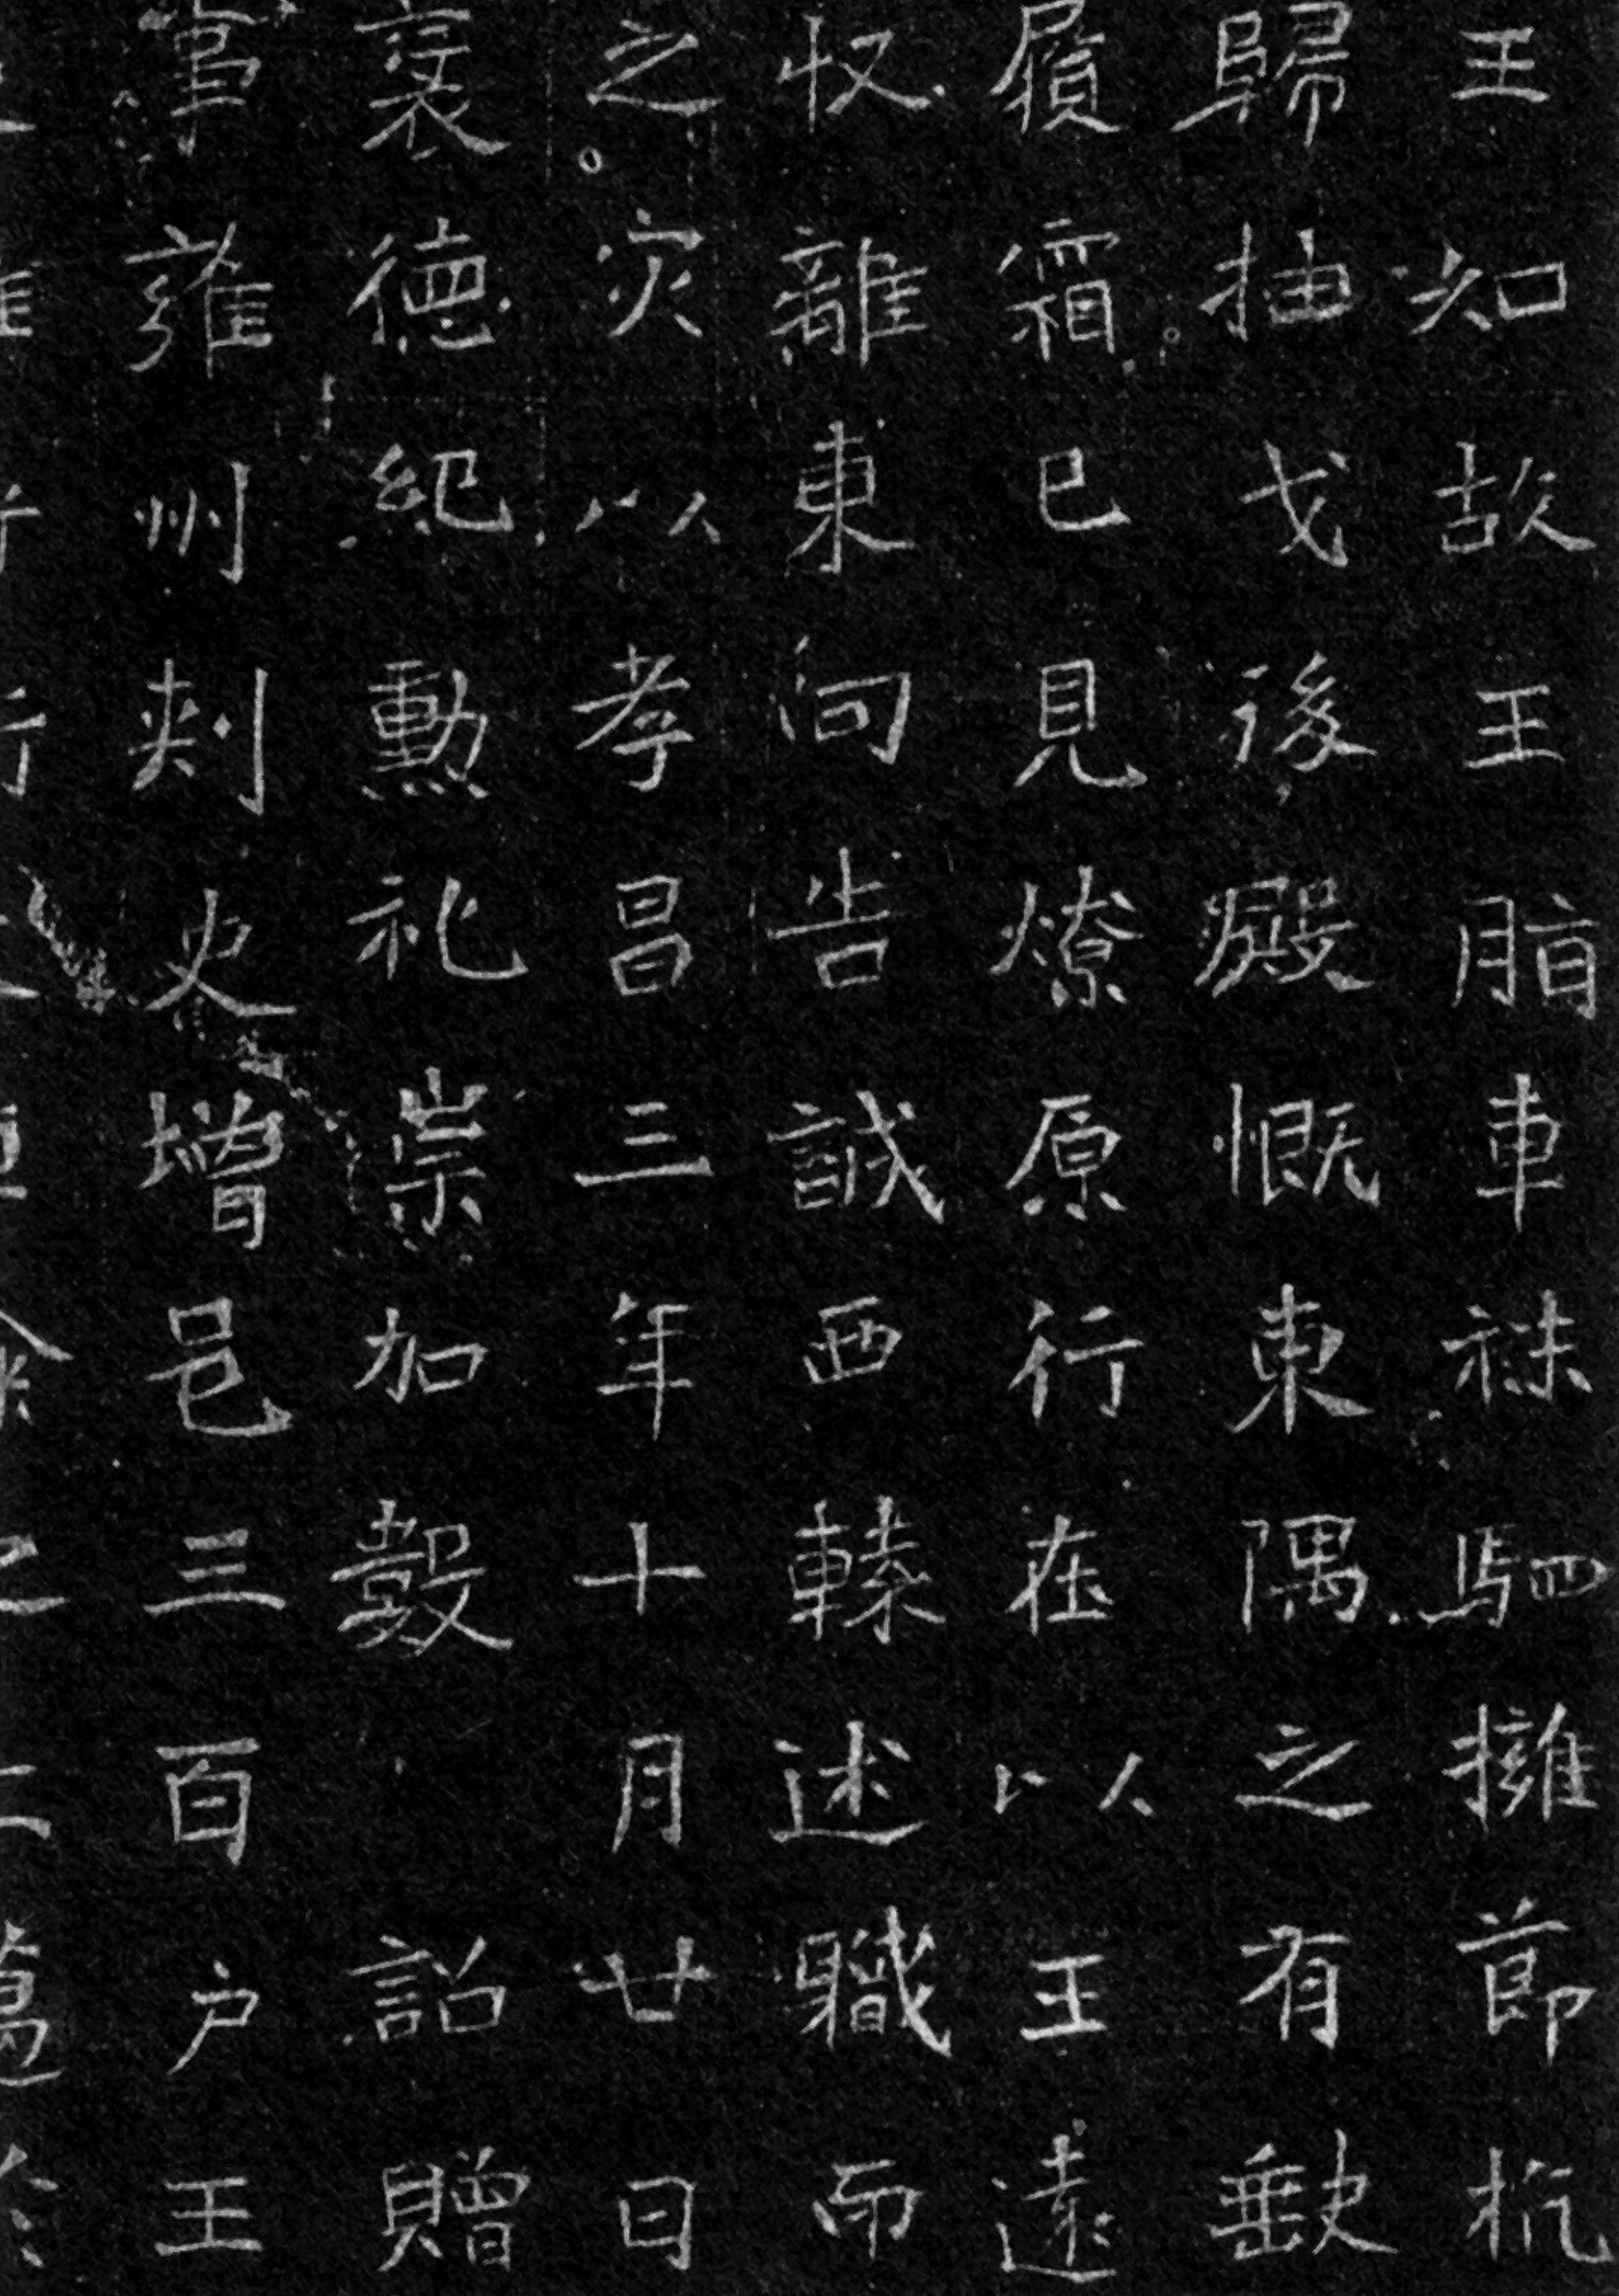 王知故王脂車秣駟擁節杭
歸抽戈後殿慨東隅之有
履霜已見燎原行在以王遠
收離東向告誠西轅述職而
之灾以孝昌三年十月廿日
襃德紀勳礼崇加數詔贈
事雍州刺史增邑三百户王